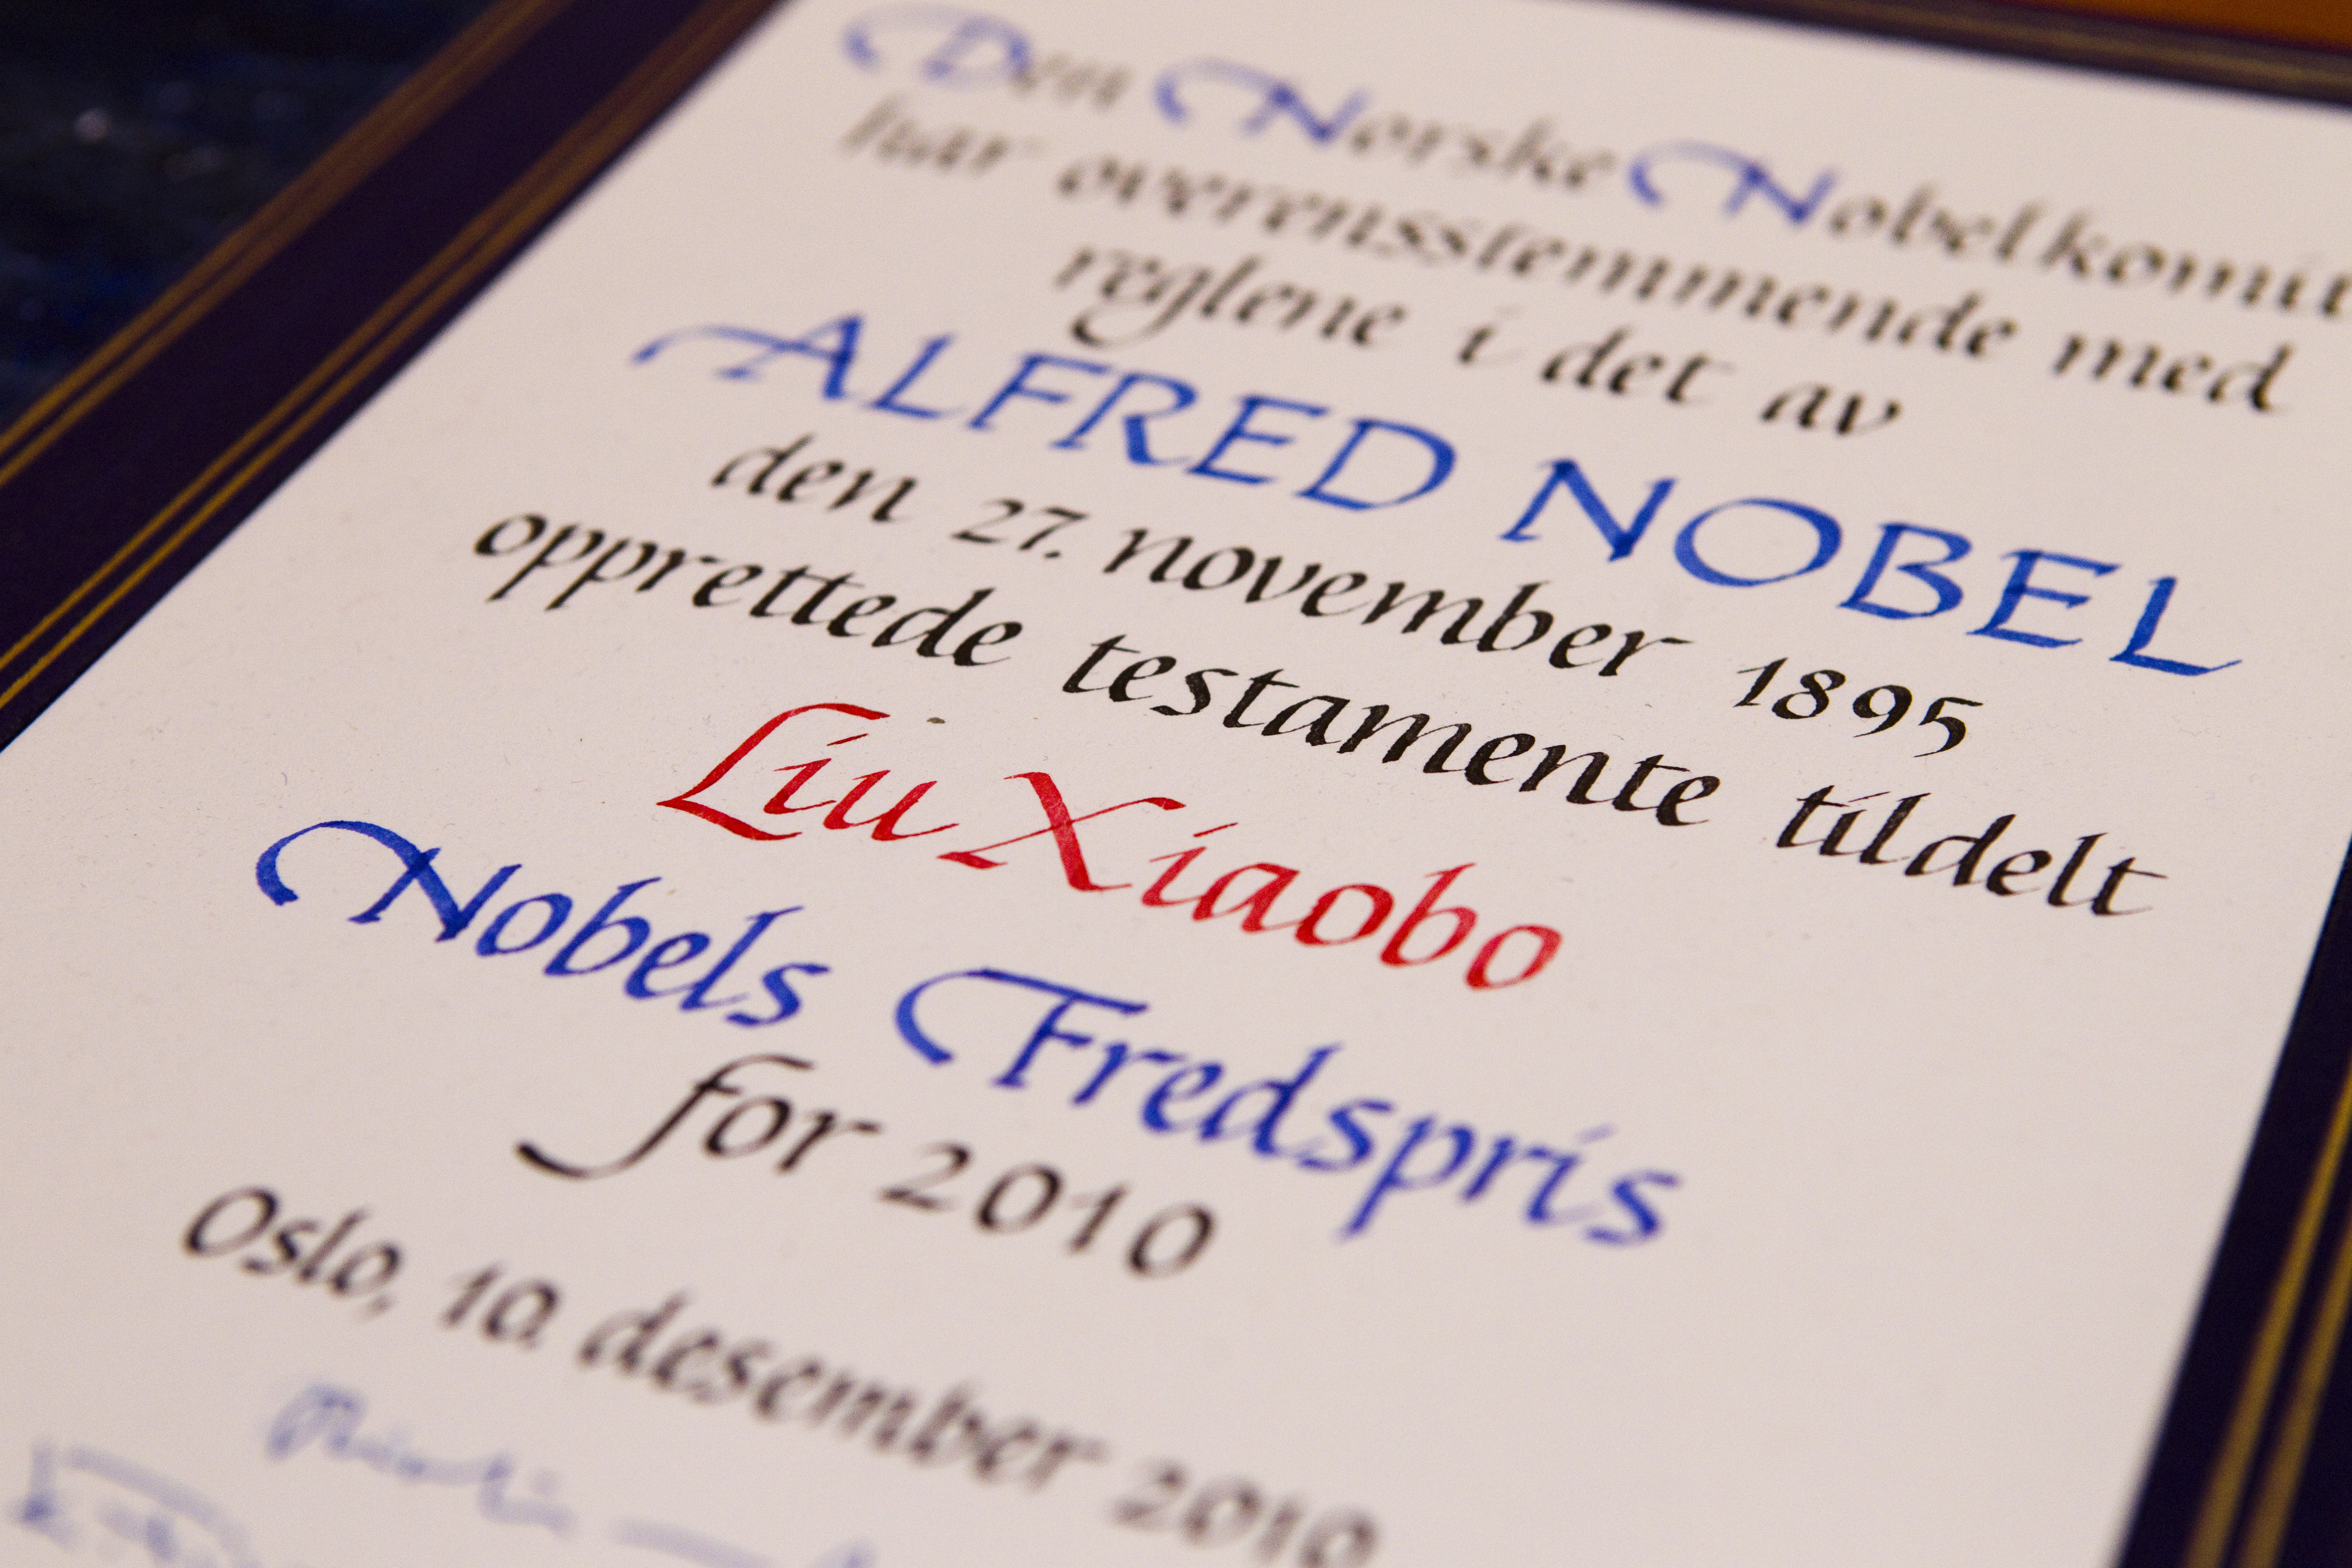 Den Norske Nobelkomit
har overensstemmende med
reglene i det av
ALFRED NOBEL
den 27. november 1895
opprettede testamente tildelt
Liu Xiaobo
Nobels Fredspris
for 2010
Oslo, 10. desember 2010